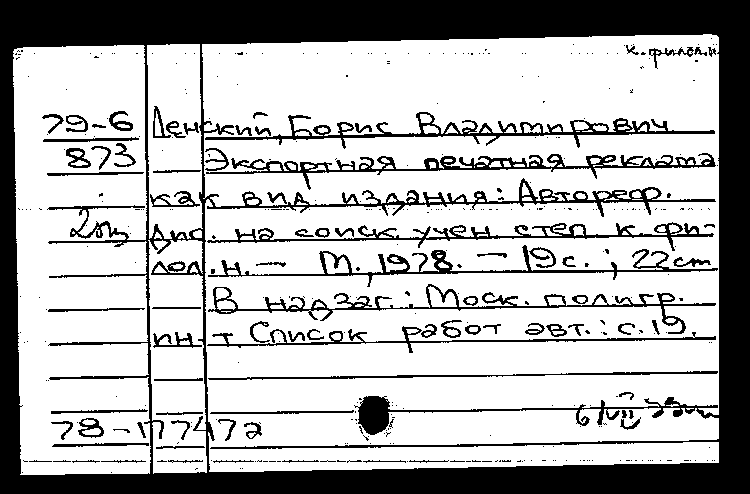 к. филол. н.
79-6 Денский, Борис Владимирович
873 Экспортная печатная реклама
как вид издания: Автореф.
2 экз дис. на соиск. учен степ. к. фи-
лол. н. — М., 1978. — 19 с.; 22 см
В надзаг.: Моск. полигр.
ин-т. Список работ авт.: с. 19.
78-177472